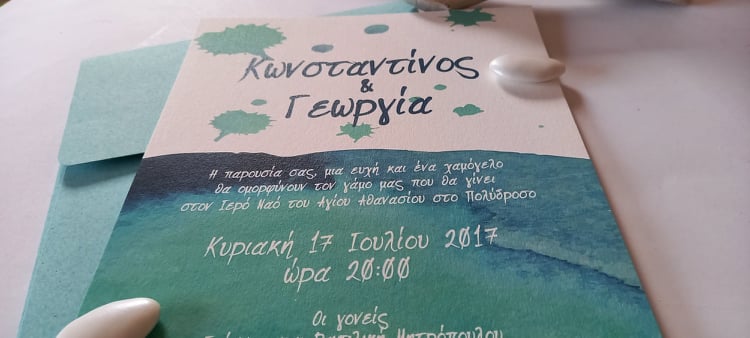 Κωνσταντίνος
&
Γεωργία
Η παρουσία σας, μια ευχή και ένα χαμόγελο
θα ομορφύνουν τον γάμο μας που θα γίνει
στον Ιερό Ναό του Αγίου Αθανασίου στο Πολύδροσο
Κυριακή 17 Ιουλίου 2017
ώρα 20:00
Οι γονείς